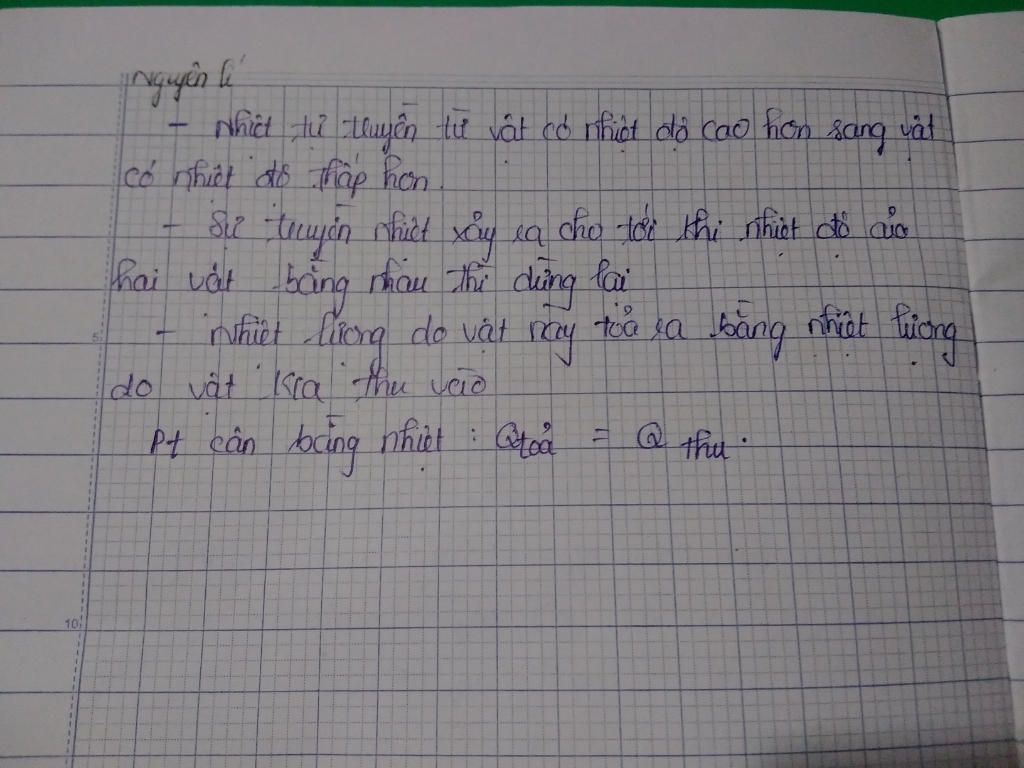 Nguyên lí
- Nhiệt tự truyền từ vật có nhiệt độ cao hơn sang vật
có nhiệt độ thấp hơn.
- Sự truyền nhiệt xảy ra cho tới khi nhiệt độ của
hai vật bằng nhau thì dừng lại
- Nhiệt lượng do vật này toả ra bằng nhiệt lượng
5
do vật kia thu vào
Pt cân bằng nhiệt : Qtoả = Q thu.
10